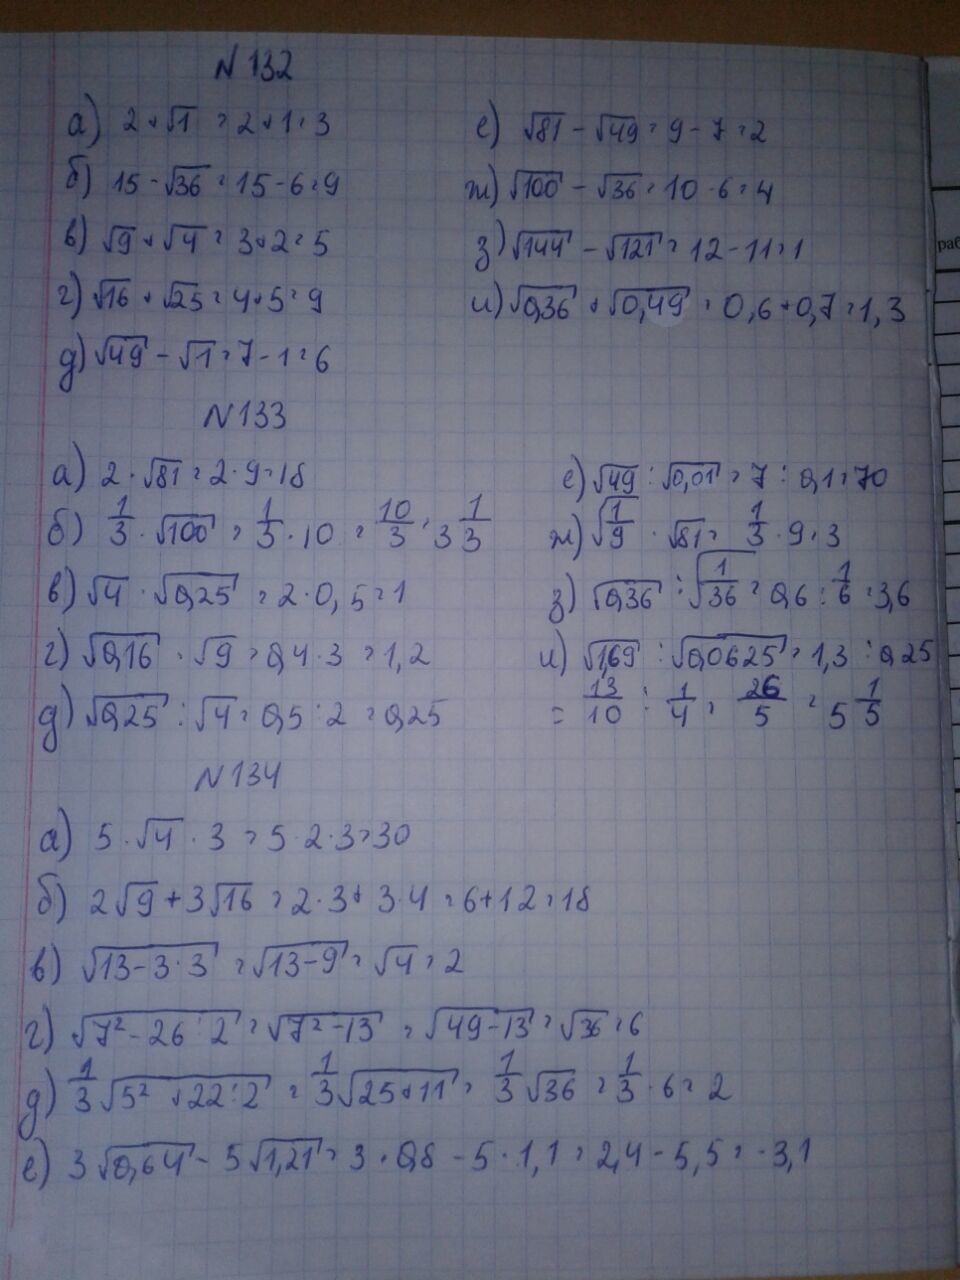 N 132
а) 2 + √1 = 2 + 1 = 3
б) 15 - √36 = 15 - 6 = 9
в) √9 + √4 = 3 + 2 = 5
г) √16 + √25 = 4 + 5 = 9
д) √49 - √1 = 7 - 1 = 6
е) √81 - √49 = 9 - 7 = 2
ж) √100 - √36 = 10 - 6 = 4
з) √144 - √121 = 12 - 11 = 1
и) √0,36 + √0,49 = 0,6 + 0,7 = 1,3
N 133
а) 2 · √81 = 2 · 9 = 18
б) 1/3 · √100 = 1/3 · 10 = 10/3 = 3 1/3
в) √4 · √0,25 = 2 · 0,5 = 1
г) √0,16 · √9 = 0,4 · 3 = 1,2
д) √0,25 : √4 = 0,5 : 2 = 0,25
е) √49 : √0,01 = 7 : 0,1 = 70
ж) √1/9 · √81 = 1/3 · 9 = 3
з) √0,36 : √1/36 = 0,6 : 1/6 = 3,6
и) √1,69 : √0,0625 = 1,3 : 0,25
= 13/10 : 1/4 = 26/5 = 5 1/5
N 134
а) 5 · √4 · 3 = 5 · 2 · 3 = 30
б) 2√9 + 3√16 = 2 · 3 + 3 · 4 = 6 + 12 = 18
в) √13 - 3 · 3 = √13 - 9 = √4 = 2
г) √7² - 26 : 2 = √7² - 13 = √49 - 13 = √36 = 6
д) 1/3 √5² + 22 : 2 = 1/3 √25 + 11 = 1/3 √36 = 1/3 · 6 = 2
е) 3√0,64 - 5√1,21 = 3 · 0,8 - 5 · 1,1 = 2,4 - 5,5 = -3,1
раб